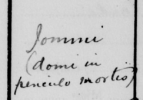 Jommi
(domi in
periculo mortis)